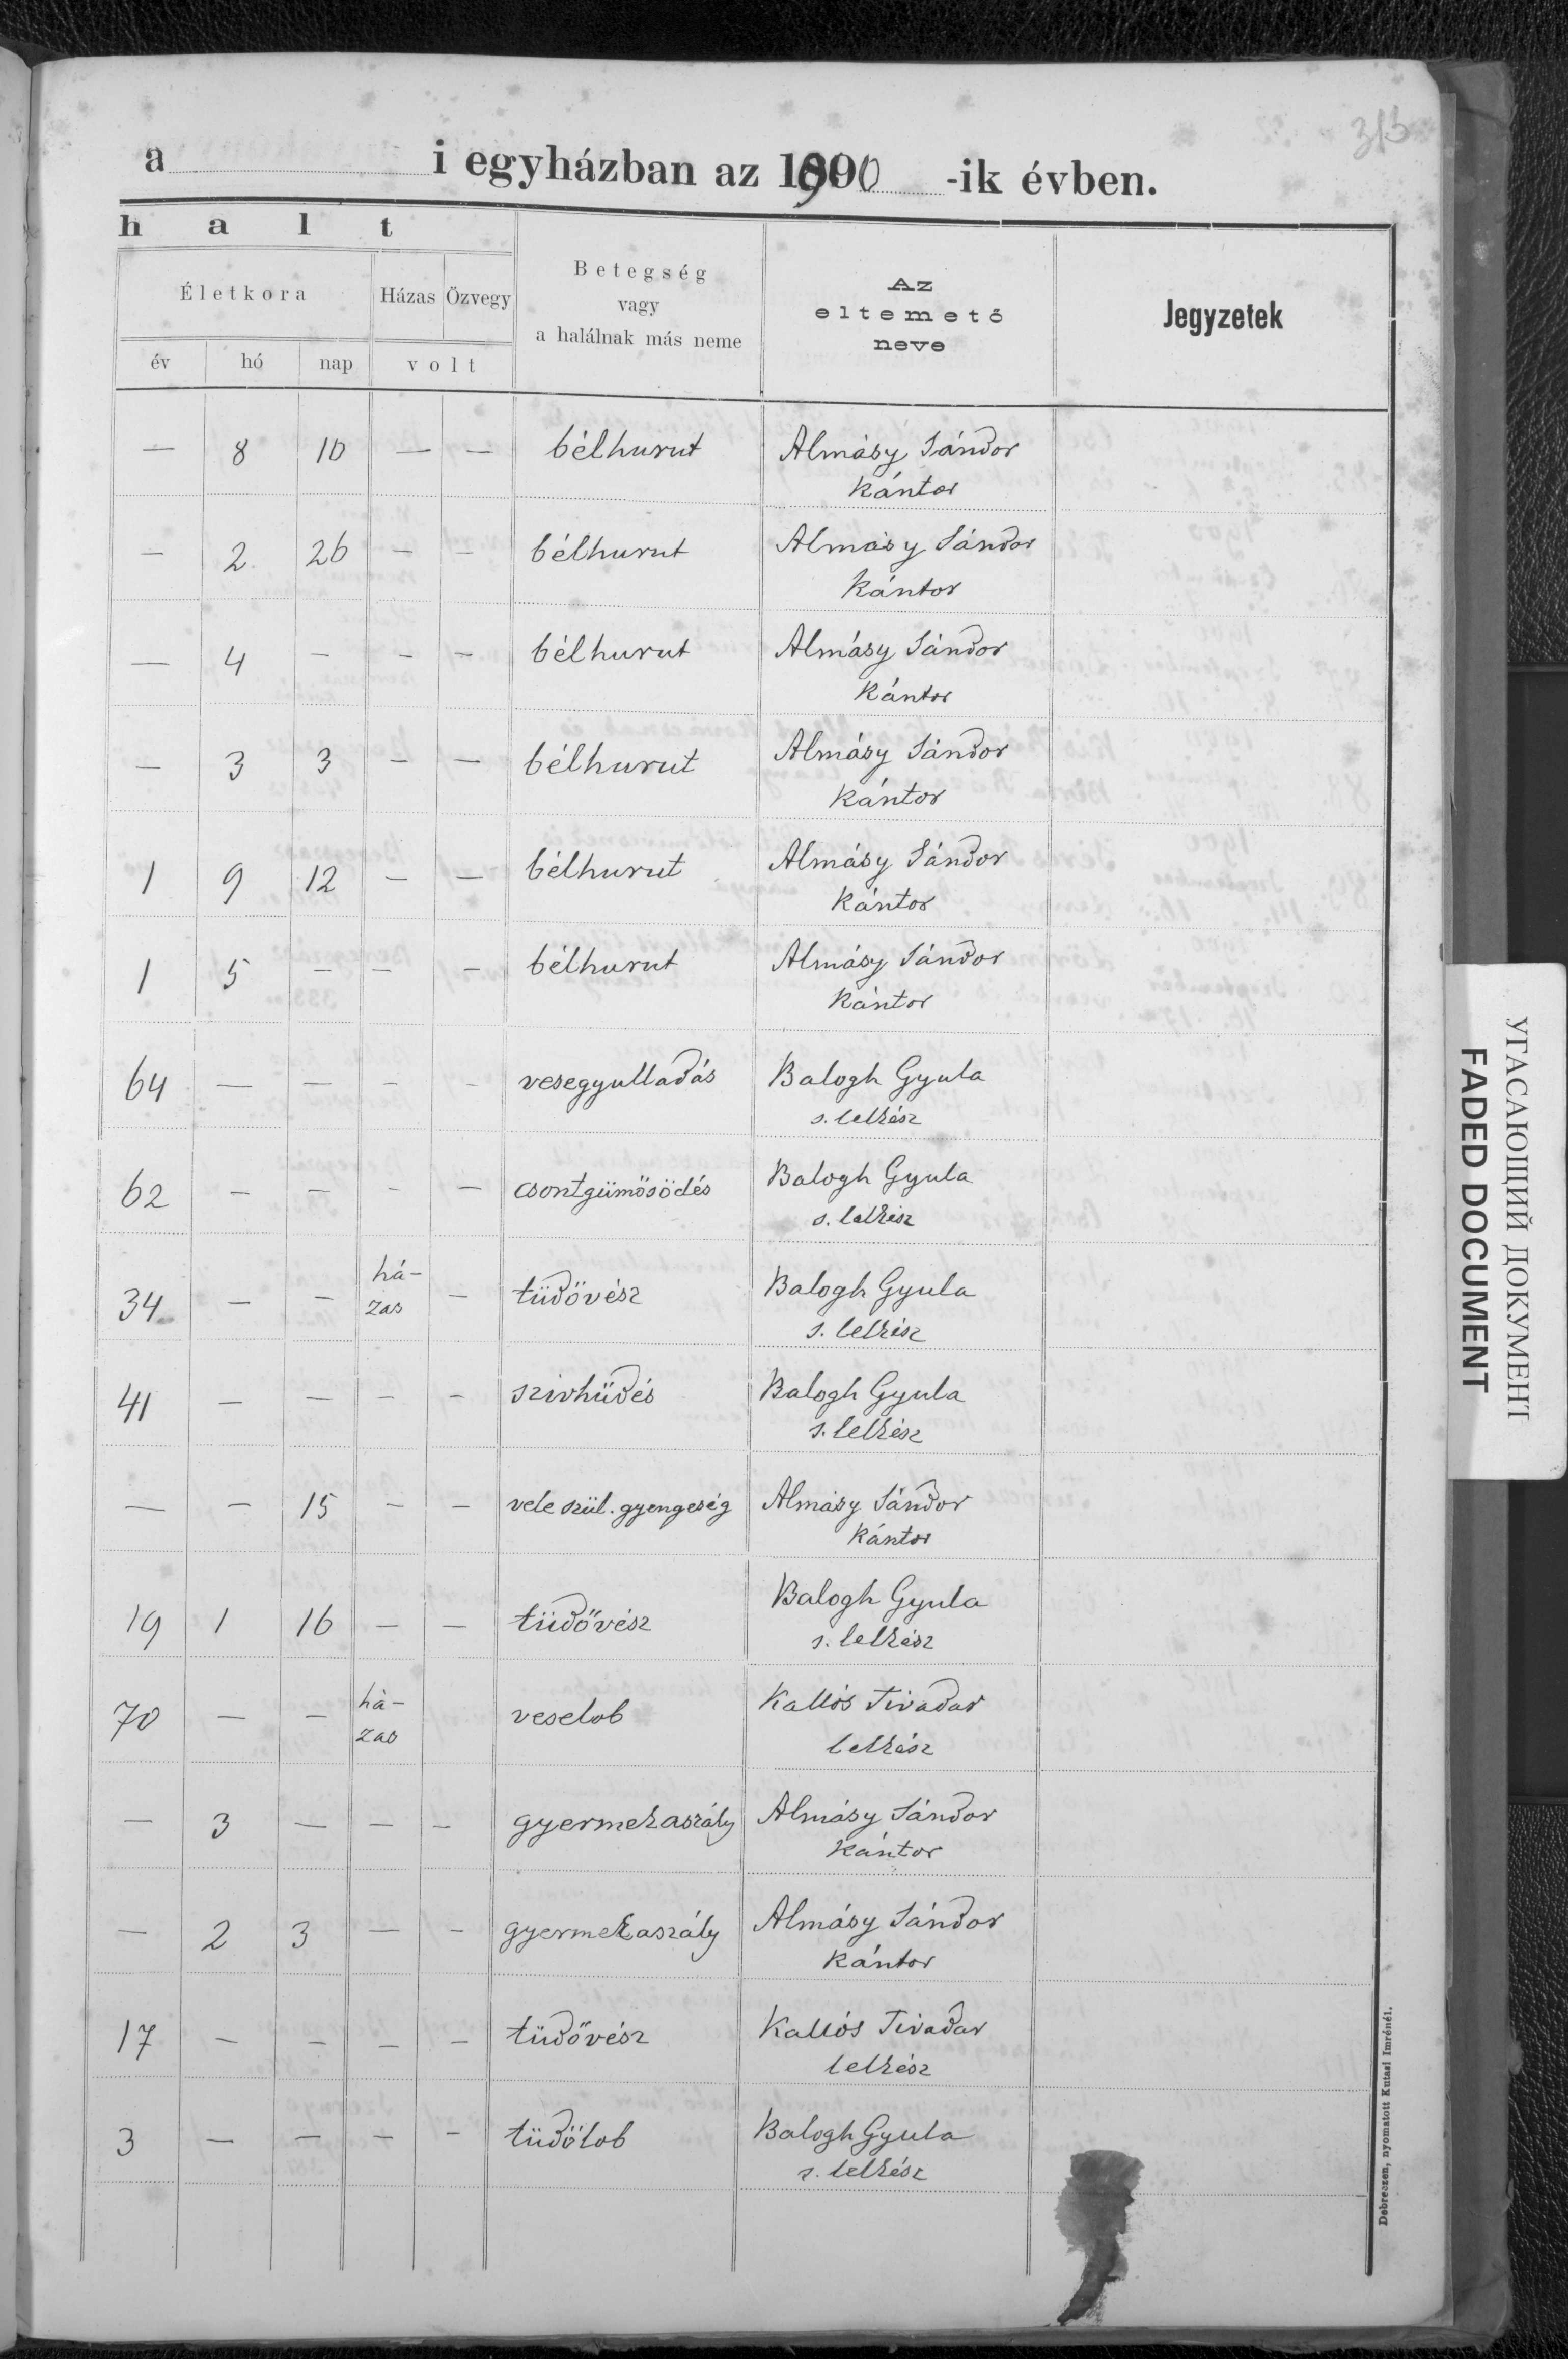 313
a i egyházban az 1900 -ik évben.
h a l t
Életkora Házas Özvegy Betegség vagy a halálnak más neme Az eltemető neve Jegyzetek
év hó nap volt
— 8 10 — — bélhurut Almásy Sándor
kántor
— 2 26 — — bélhurut Almásy Sándor
kántor
— 4 — — — bélhurut Almásy Sándor
kántor
— 3 3 — — bélhurut Almásy Sándor
kántor
1 9 12 — — bélhurut Almásy Sándor
kántor
1 5 — — — bélhurut Almásy Sándor
kántor
64 — — — — vesegyulladás Balogh Gyula
s. lelkész
62 — — — — csontgümősödés Balogh Gyula
s. lelkész
34 — — há-
zas — tüdővész Balogh Gyula
s. lelkész
41 — — — — szivhüdés Balogh Gyula
s. lelkész
— — 15 — — vele szül. gyengeség Almásy Sándor
kántor
19 1 16 — — tüdővész Balogh Gyula
s. lelkész
70 — — há-
zas veselob Kallós Tivadar
lelkész
— 3 — — — gyermekaszály Almásy Sándor
kántor
— 2 3 — — gyermekaszály Almásy Sándor
kántor
17 — — — — tüdővész Kallós Tivadar
lelkész
3 — — — — tüdőlob Balogh Gyula
s. lelkész
Debreczen, nyomatott Kutasi Imrénél.
УГАСАЮЩИЙ ДОКУМЕНТ
FADED DOCUMENT